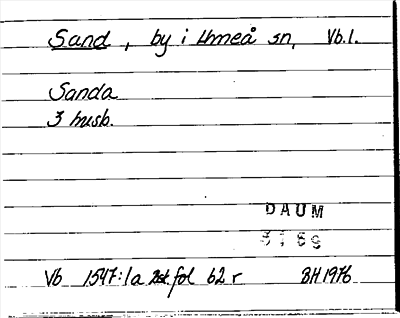 Sand, by i Umeå sn, Vb.l.
Sanda
3 husb.
DAUM
Vb 1547:1a 2st fol 62 r BH 1976